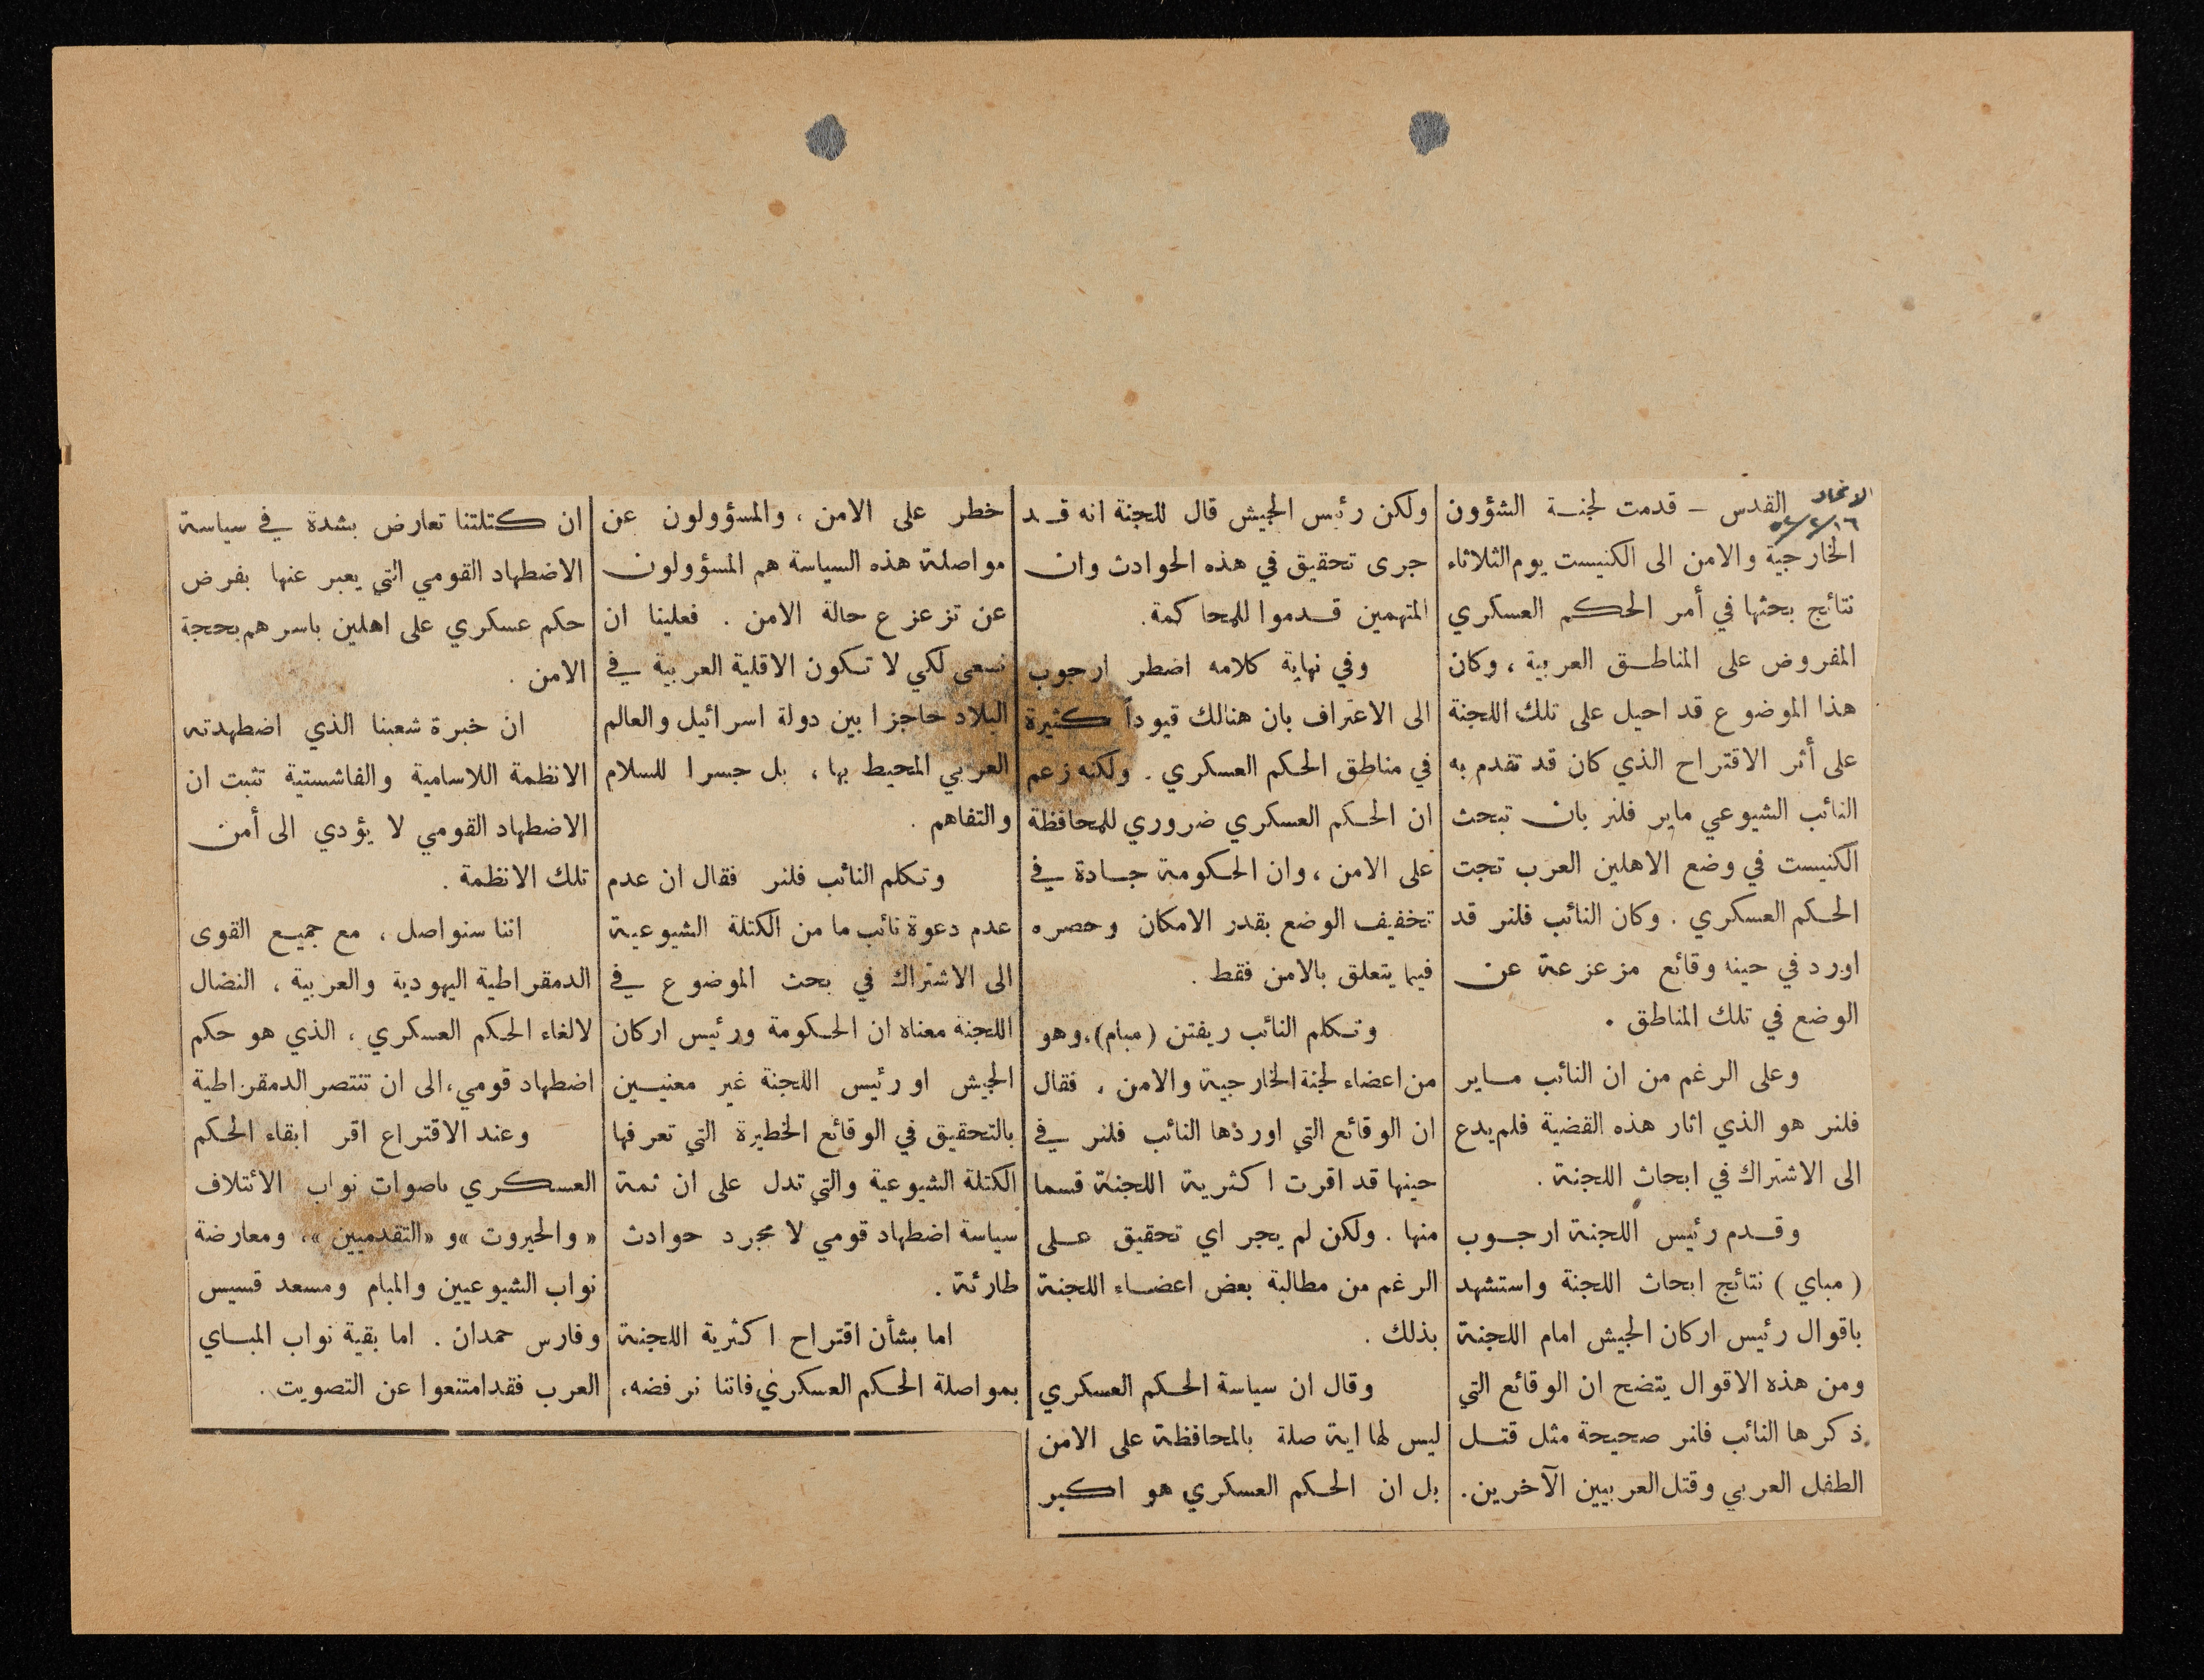 الاتحاد
القدس - قدمت لجنة الشؤون
الخارجية والامن الى الكنيست يوم الثلاثاء
نتائج بحثها في أمر الحكم العسكري
المفروض على المناطق العربية ، وكان
هذا الموضوع قد احيل على تلك اللجنة
على أثر الاقتراح الذي كان قد تقدم به
النائب الشيوعي ماير فلنر بان تبحث
الكنيست في وضع الاهلين العرب تجت
الحكم العسكري . وكان النائب فلنر قد
اورد في حينه وقائع مزعزعة عن
الوضع في تلك المناطق .
وعلى الرغم من ان النائب ماير
فلنر هو الذي اثار هذه القضية فلم يدع
الى الاشتراك في ابحاث اللجنة .
وقدم رئيس اللجنة ارجوب
( مباي ) نتائج ابحاث اللجنة واستشهد
باقوال رئيس اركان الجيش امام اللجنة
ومن هذه الاقوال يتضح ان الوقائع التي
ذكرها النائب فلنر صحيحة مثل قتل
الطفل العربي وقتل العربيين الآخرين .
ولكن رئيس الجيش قال للجنة انه قد
جرى تحقيق في هذه الحوادث وان
المتهمين قدموا للمحاكمة .
وفي نهاية كلامه اضطر ارجوب
الى الاعتراف بان هنالك قيوداً كثيرة
في مناطق الحكم العسكري . ولكنه زعم
ان الحكم العسكري ضروري للمحافظة
على الامن ، وان الحكومة جادة في
تخفيف الوضع بقدر الامكان وحصره
فيما يتعلق بالامن فقط .
وتكلم النائب ريفتن ( مبام ) ، وهو
من اعضاء لجنة الخارجية والامن ، فقال
ان الوقائع التي اوردها النائب فلنر في
حينها قد اقرت اكثرية اللجنة قسما
منها . ولكن لم يجر اي تحقيق على
الرغم من مطالبة بعض اعضاء اللجنة
بذلك .
وقال ان سياسة الحكم العسكري
ليس لها اية صلة بالمحافظة على الامن
بل ان الحكم العسكري هو اكبر
خطر على الامن ، والمسؤولون عن
مواصلة هذه السياسة هم المسؤولون
عن تزعزع حالة الامن . فعلينا ان
نسعى لكي لا تكون الاقلية العربية في
البلاد حاجزا بين دولة اسرائيل والعالم
العربي المحيط بها ، بل جسرا للسلام
والتفاهم .
وتكلم النائب فلنر فقال ان عدم
عدم دعوة نائب ما من الكتلة الشيوعية
الى الاشتراك في بحث الموضوع في
اللجنة معناه ان الحكومة ورئيس اركان
الجيش او رئيس اللجنة غير معنيين
بالتحقيق في الوقائع الخطيرة التي تعرفها
الكتلة الشيوعية والتي تدل على ان ثمة
سياسة اضطهاد قومي لا مجرد حوادث
طارئة .
اما بشأن اقتراح اكثرية اللجنة
بمواصلة الحكم العسكري فاننا نرفضه ،
ان كتلتنا تعارض بشدة في سياسة
الاضطهاد القومي التي يعبر عنها بفرض
حكم عسكري على اهلين باسرهم بحجة
الامن .
ان خبرة شعبنا الذي اضطهدته
الانظمة اللاسامية والفاشستية تثبت ان
الاضطهاد القومي لا يؤدي الى أمن
تلك الانظمة .
اننا سنواصل ، مع جميع القوى
الدمقراطية اليهودية والعربية ، النضال
لالغاء الحكم العسكري ، الذي هو حكم
اضطهاد قومي ، الى ان تنتصر الدمقراطية
وعند الاقتراع اقر ابقاء الحكم
العسكري باصوات نواب الائتلاف
« والحيروت » و « التقدميين » ، ومعارضة
نواب الشيوعيين والمبام ومسعد قسيس
وفارس حمدان . اما بقية نواب المباي
العرب فقد امتنعوا عن التصويت .